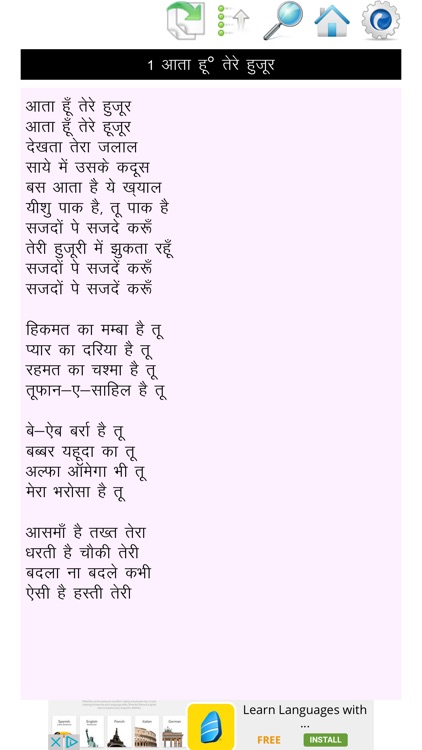 1 आता हू° तेरे हुजूर
आता हूँ तेरे हुजूर
आता हूँ तेरे हूजूर
देखता तेरा जलाल
साये में उसके कदूस
बस आता है ये ख्याल
यीशु पाक है, तू पाक है
सजदों पे सजदे करूँ
तेरी हुजूरी में झुकता रहूँ
सजदों पे सजदें करूँ
सजदों पे सजदें करूँ
हिकमत का मम्बा है तू
प्यार का दरिया है तू
रहमत का चश्मा है तू
तूफान–ए–साहिल है तू
बे–ऐब बर्रा है तू
बब्बर यहूदा का तू
अल्फा ऑमेगा भी तू
मेरा भरोसा है तू
आसमाँ है तख्त तेरा
धरती है चौकी तेरी
बदला ना बदले कभी
ऐसी है हस्ती तेरी
Spanish English French Italian German
Learn Languages with
...
FREE INSTALL